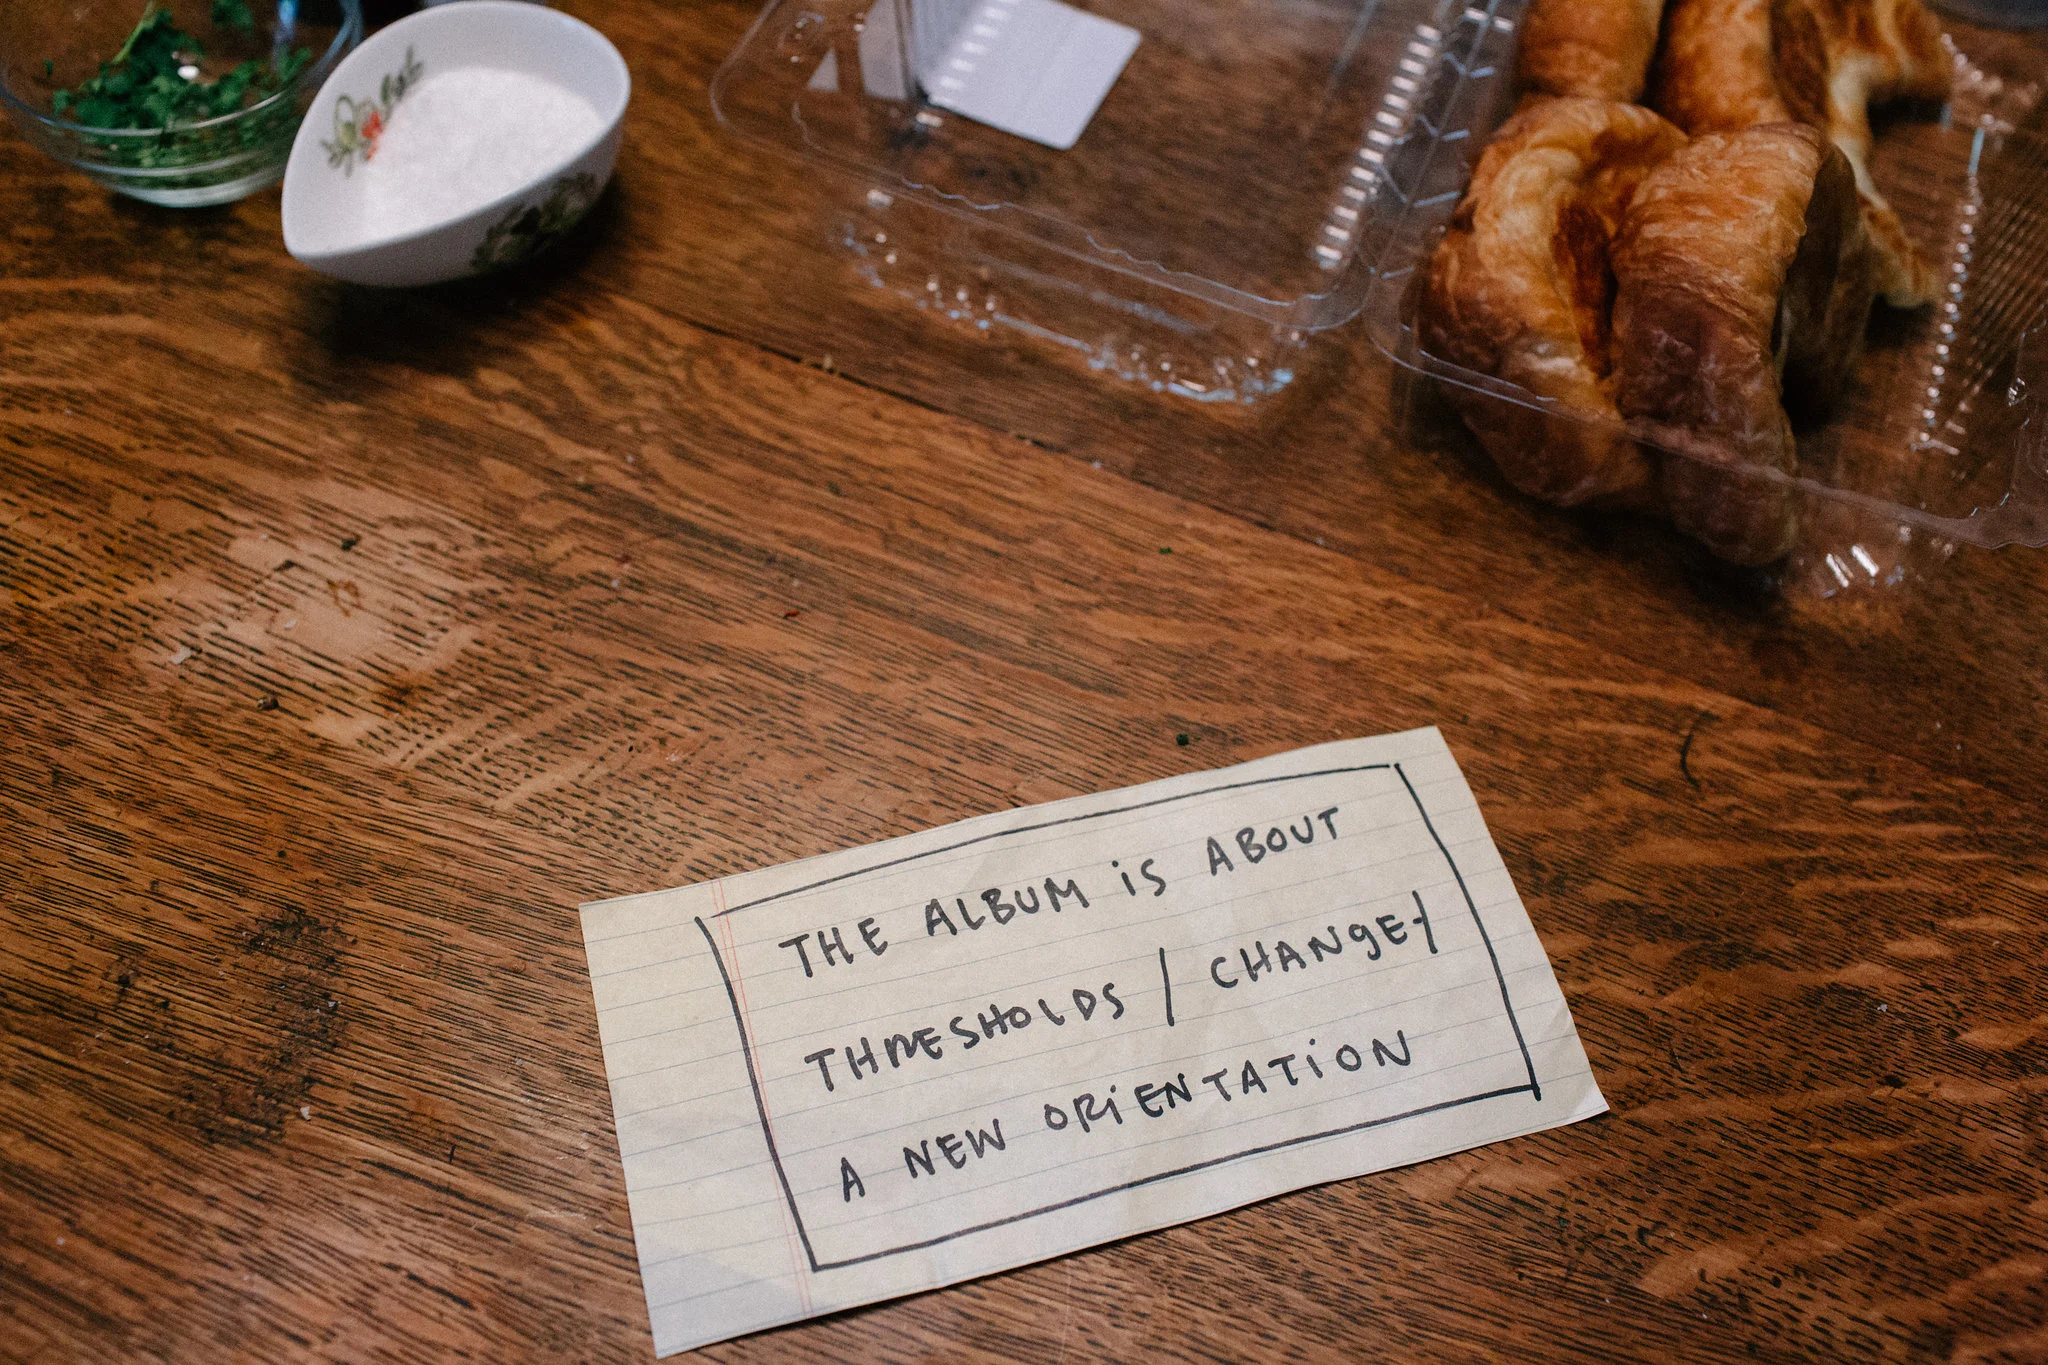 THE ALBUM iS ABOUT
THRESHOLDS / CHANGE /
A NEW ORiENTATiON